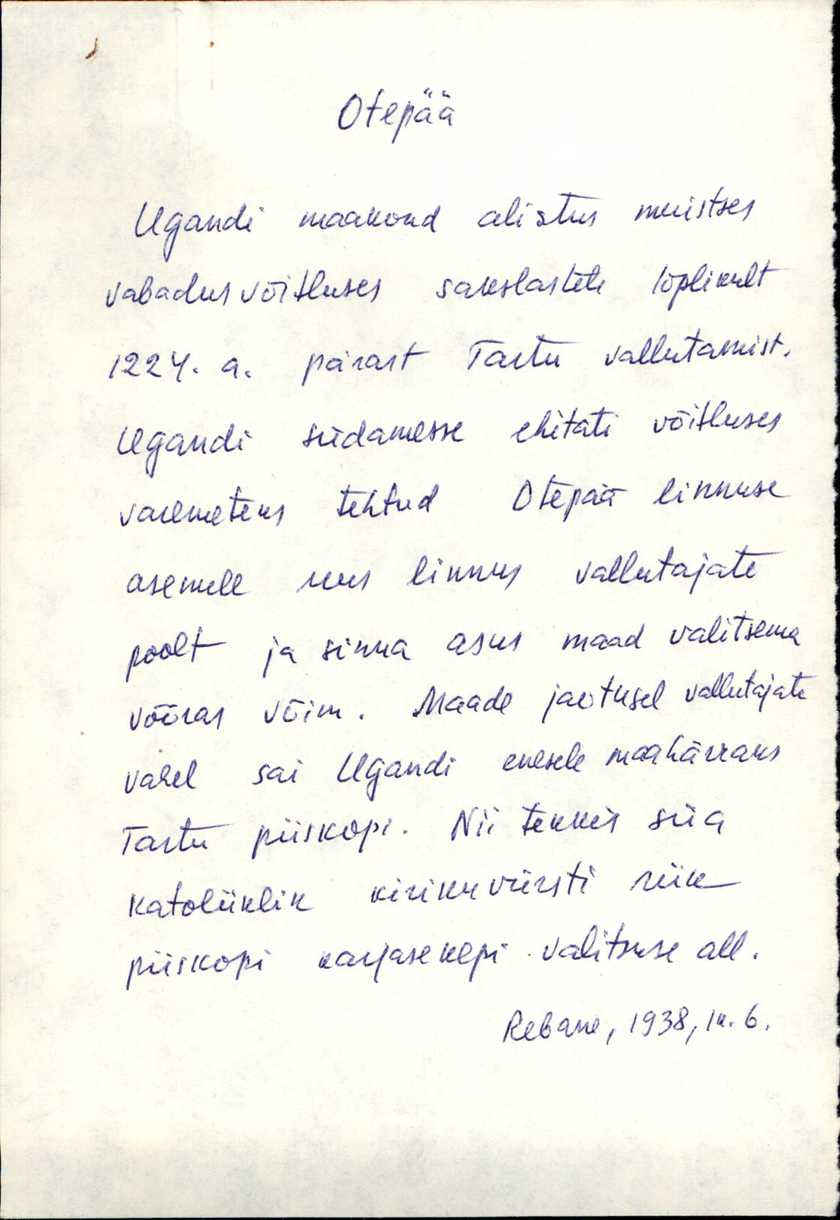 Otepää
Ugandi maakond alistus muistses
vabadusvõitluses sakslastele lõplikult
1224. a. pärast Tartu vallutamist.
Ugandi südamesse ehitati võitluses
varemeteks tehtud Otepää linnuse
asemele uus linnus vallutajate
poolt ja sinna asus maad valitsema
võõras võim. Maade jaotusel vallutajate
vahel sai Ugandi enesele maahärraks
Tartu piiskopi. Nii tekkis siia
katoliiklik kirikuvürsti riik
piiskopi karjasekepi valitsuse all.
Rebane, 1938, lk. 6.